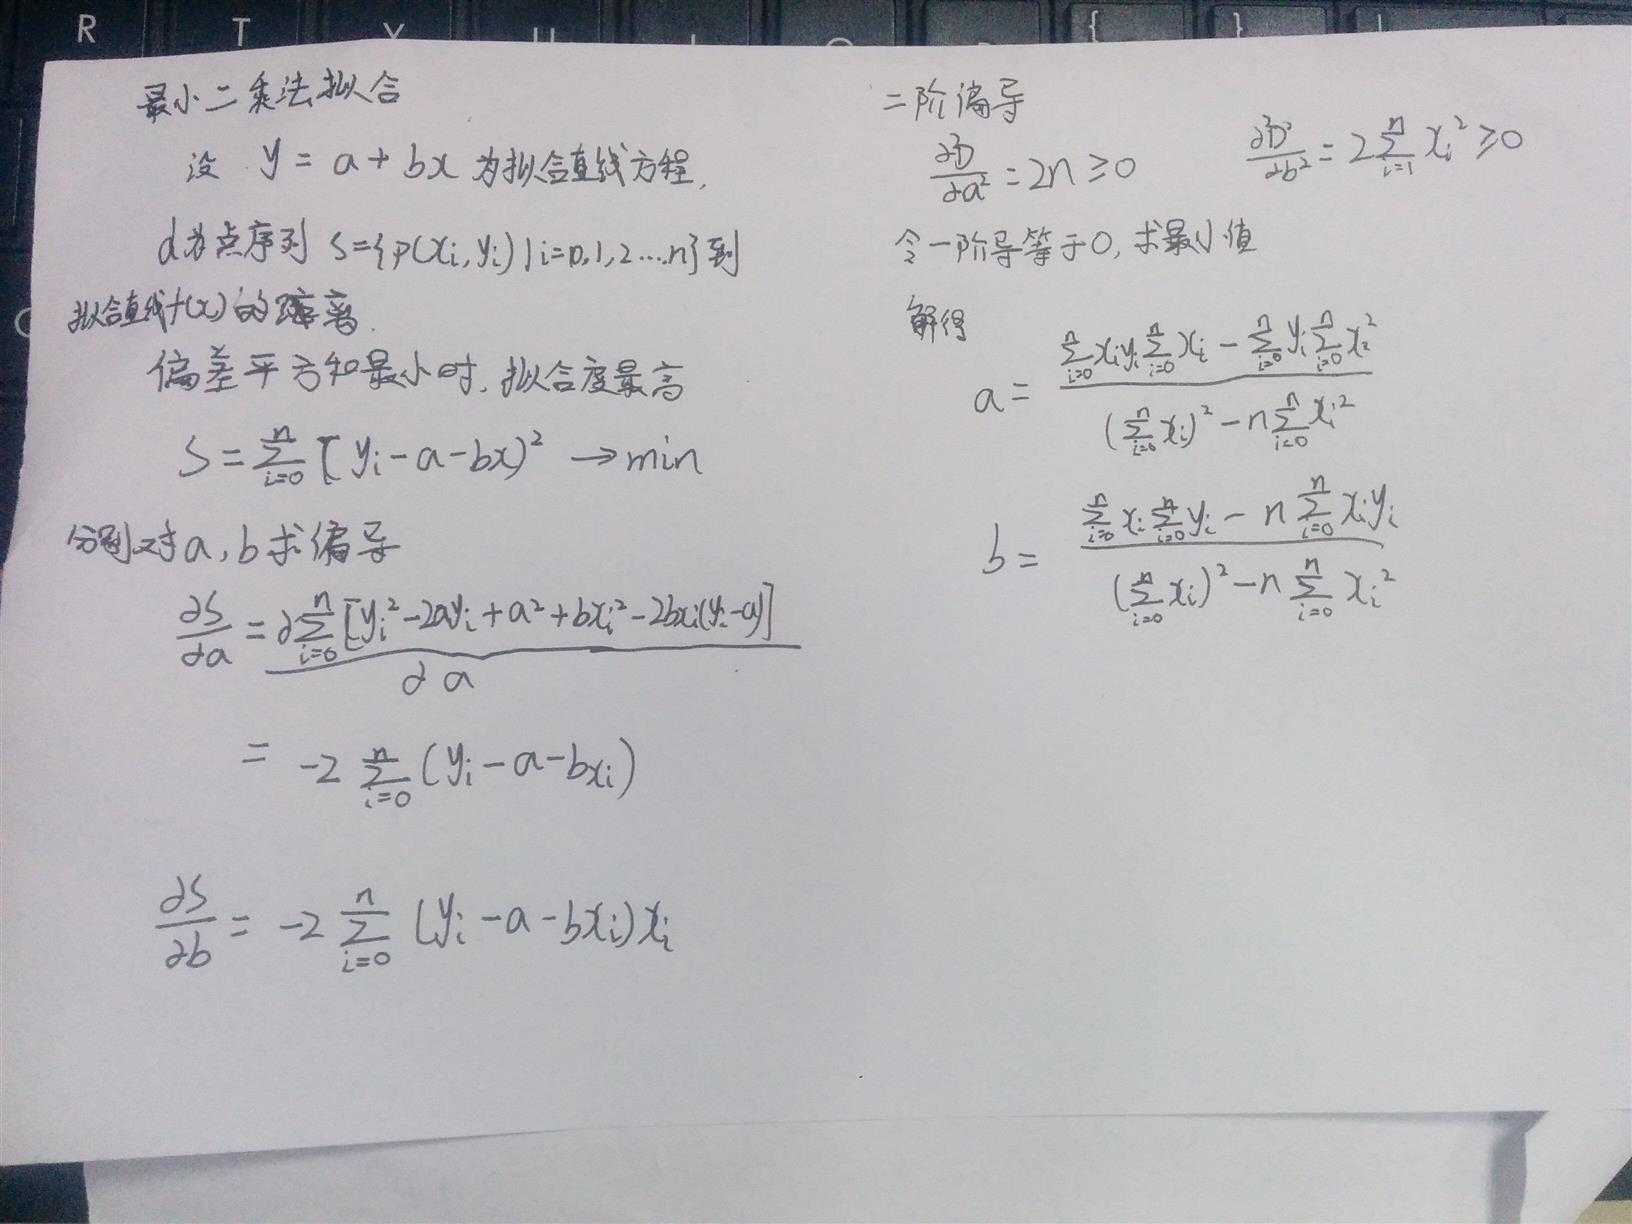 R T Y U I O P { }
最小二乘法拟合
设 y = a + bx 为拟合直线方程,
d为点序列 S={p(xi, yi) | i=0,1,2...n}到
拟合直线f(x)的距离.
偏差平方和最小时, 拟合度最高
S = Σ_{i=0}^{n} [yi - a - bx)² → min
分别对a, b求偏导
∂S/∂a = ∂Σ_{i=0}^{n} [yi² - 2ayi + a² + bxi² - 2bxi(yi - a)] / ∂a
= -2 Σ_{i=0}^{n} (yi - a - bxi)
∂S/∂b = -2 Σ_{i=0}^{n} (yi - a - bxi)xi
二阶偏导
∂D/∂a² = 2n ≥ 0    ∂²D²/∂b² = 2 Σ_{i=1}^{n} xi² ≥ 0
令一阶导等于0, 求最小值
解得
a = (Σ_{i=0}^{n} xiyi Σ_{i=0}^{n} xi - Σ_{i=0}^{n} yi Σ_{i=0}^{n} xi²) / ((Σ_{i=0}^{n} xi)² - n Σ_{i=0}^{n} xi²)
b = (Σ_{i=0}^{n} xi Σ_{i=0}^{n} yi - n Σ_{i=0}^{n} xiyi) / ((Σ_{i=0}^{n} xi)² - n Σ_{i=0}^{n} xi²)